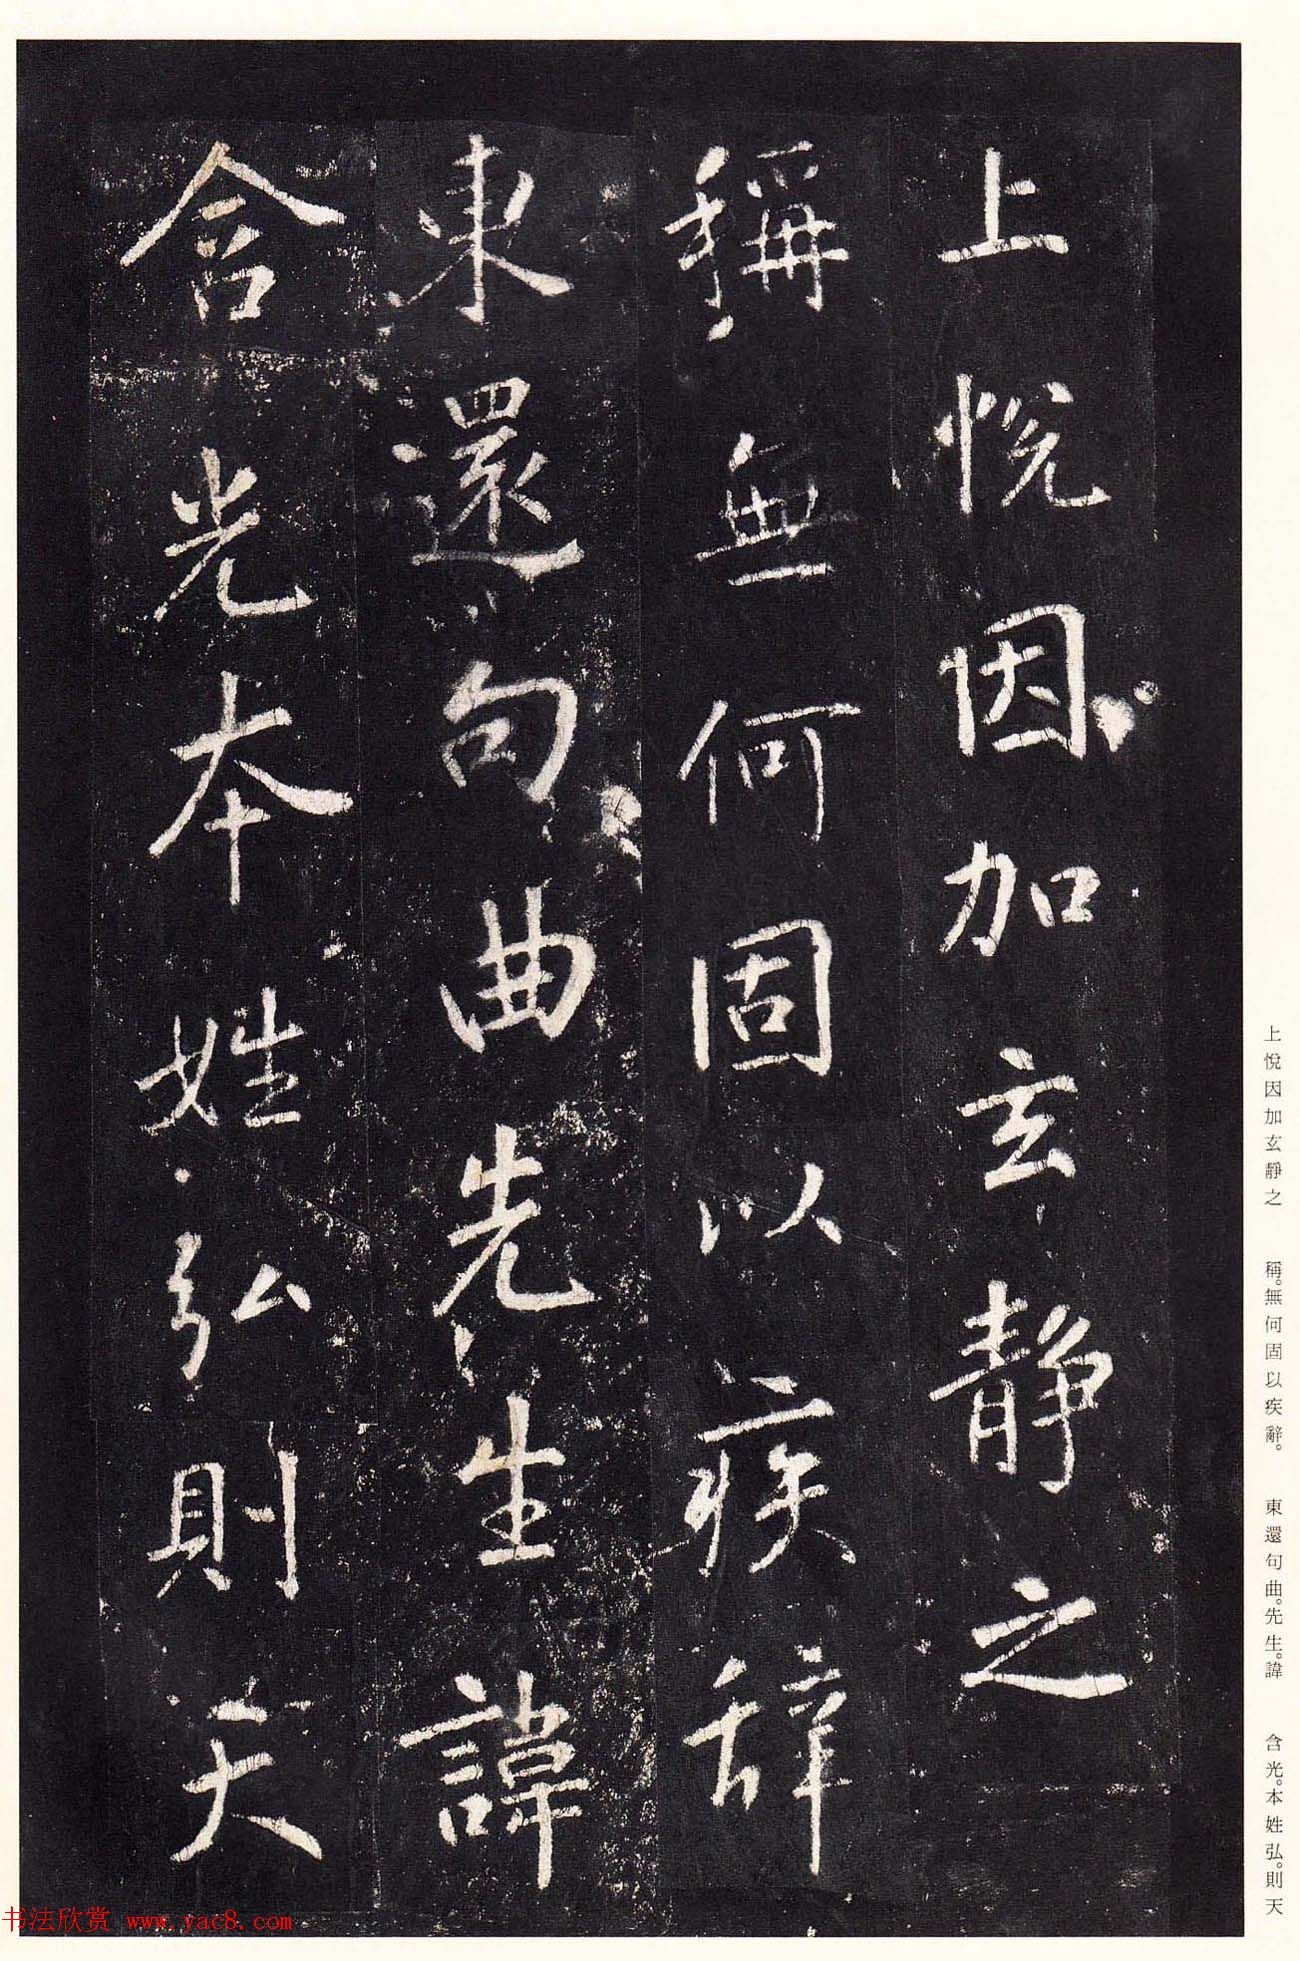 上悦因加玄静之
稱無何固以疾辞
東還句曲先生諱
含光本姓弘則天
上悅因加玄靜之　稱。無何固以疾辭。　東還句曲。先生。諱　含光。本姓弘。則天
书法欣赏 www.yac8.com